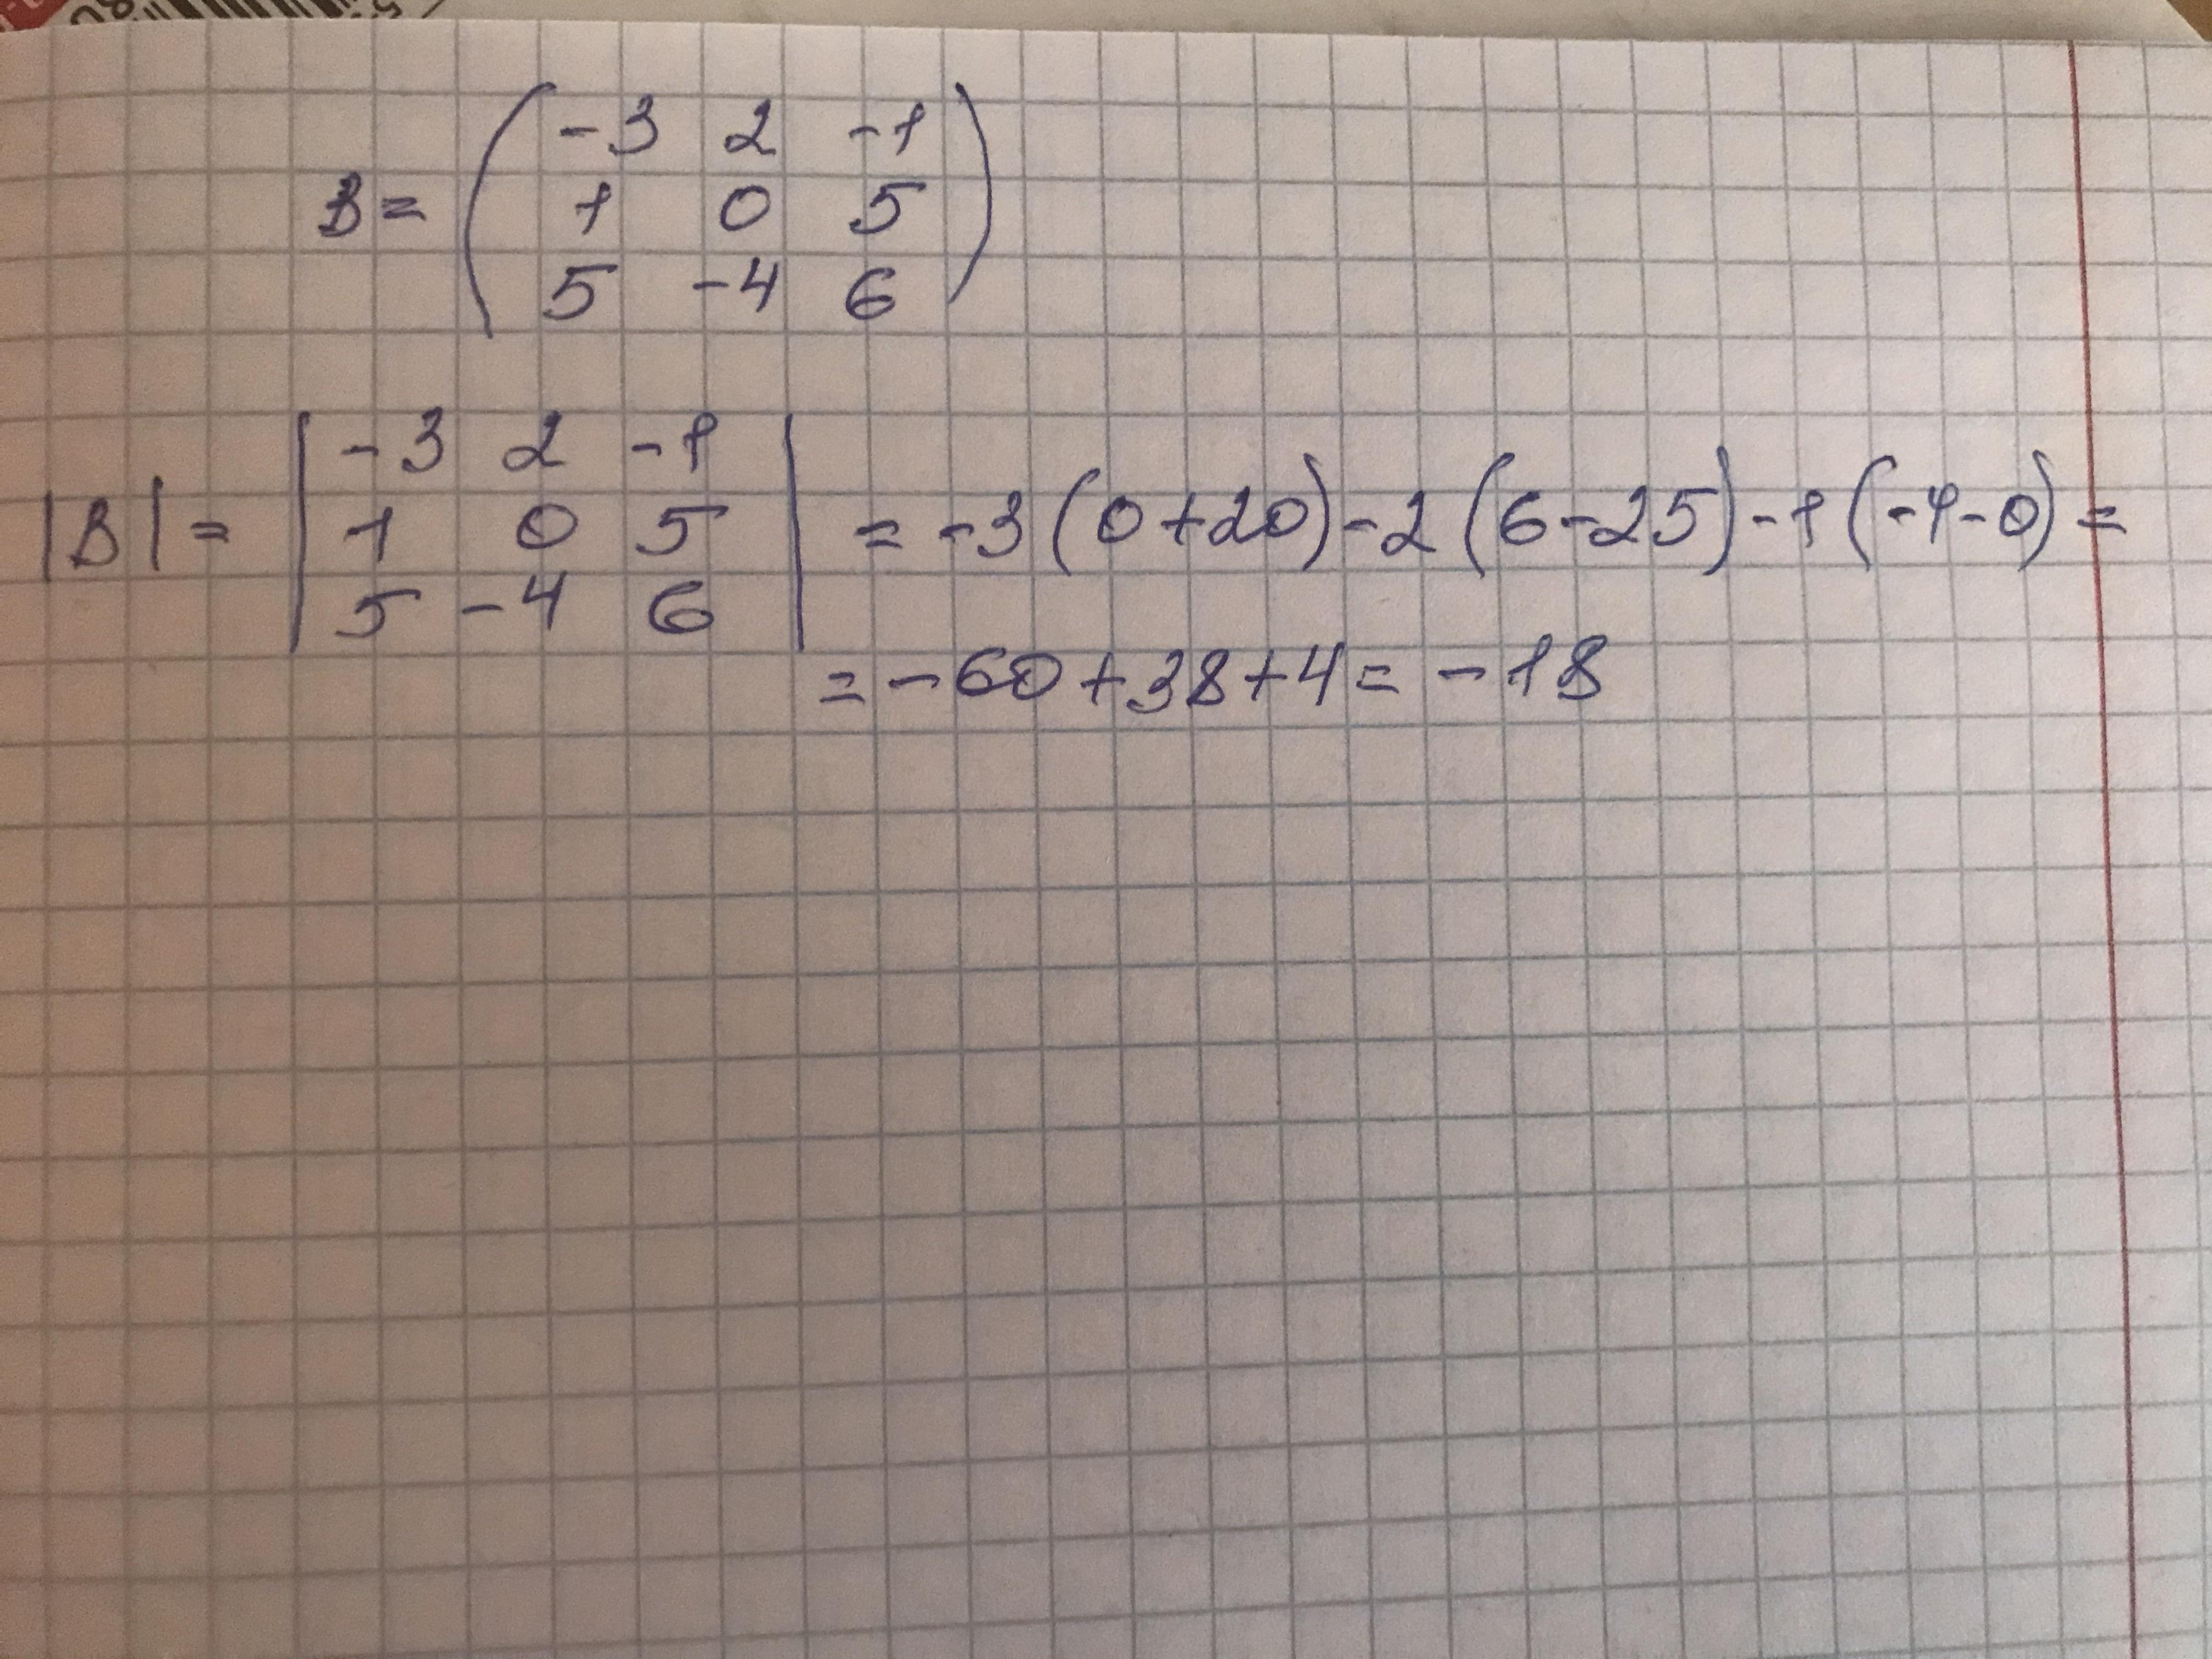 B = ( -3 2 -1
1 0 5
5 -4 6 )
|B| = | -3 2 -1
1 0 5
5 -4 6 | = -3 (0+20) -2 (6-25) -1 (-4-0) =
= -60 + 38 + 4 = -18